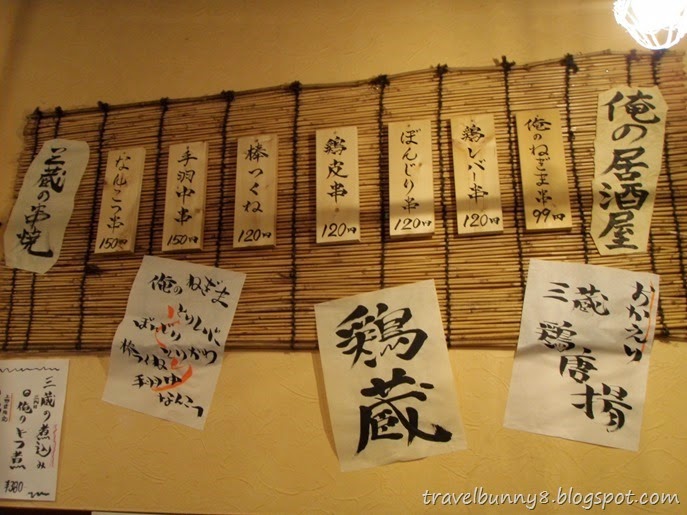 俺の居酒屋
俺のねぎま串
99円
鶏レバー串
120円
ぼんじり串
120円
鶏皮串
120円
棒つくね
120円
手羽中串
150円
なんこつ串
150円
三蔵の串焼
おかえり
三蔵
鶏唐揚
鶏蔵
俺のねぎま
とりレバー
ぼんじり
とりかわ
棒つくね
手羽中
なんこつ
三蔵の煮込み
俺のもつ煮
¥380
travelbunny8.blogspot.com